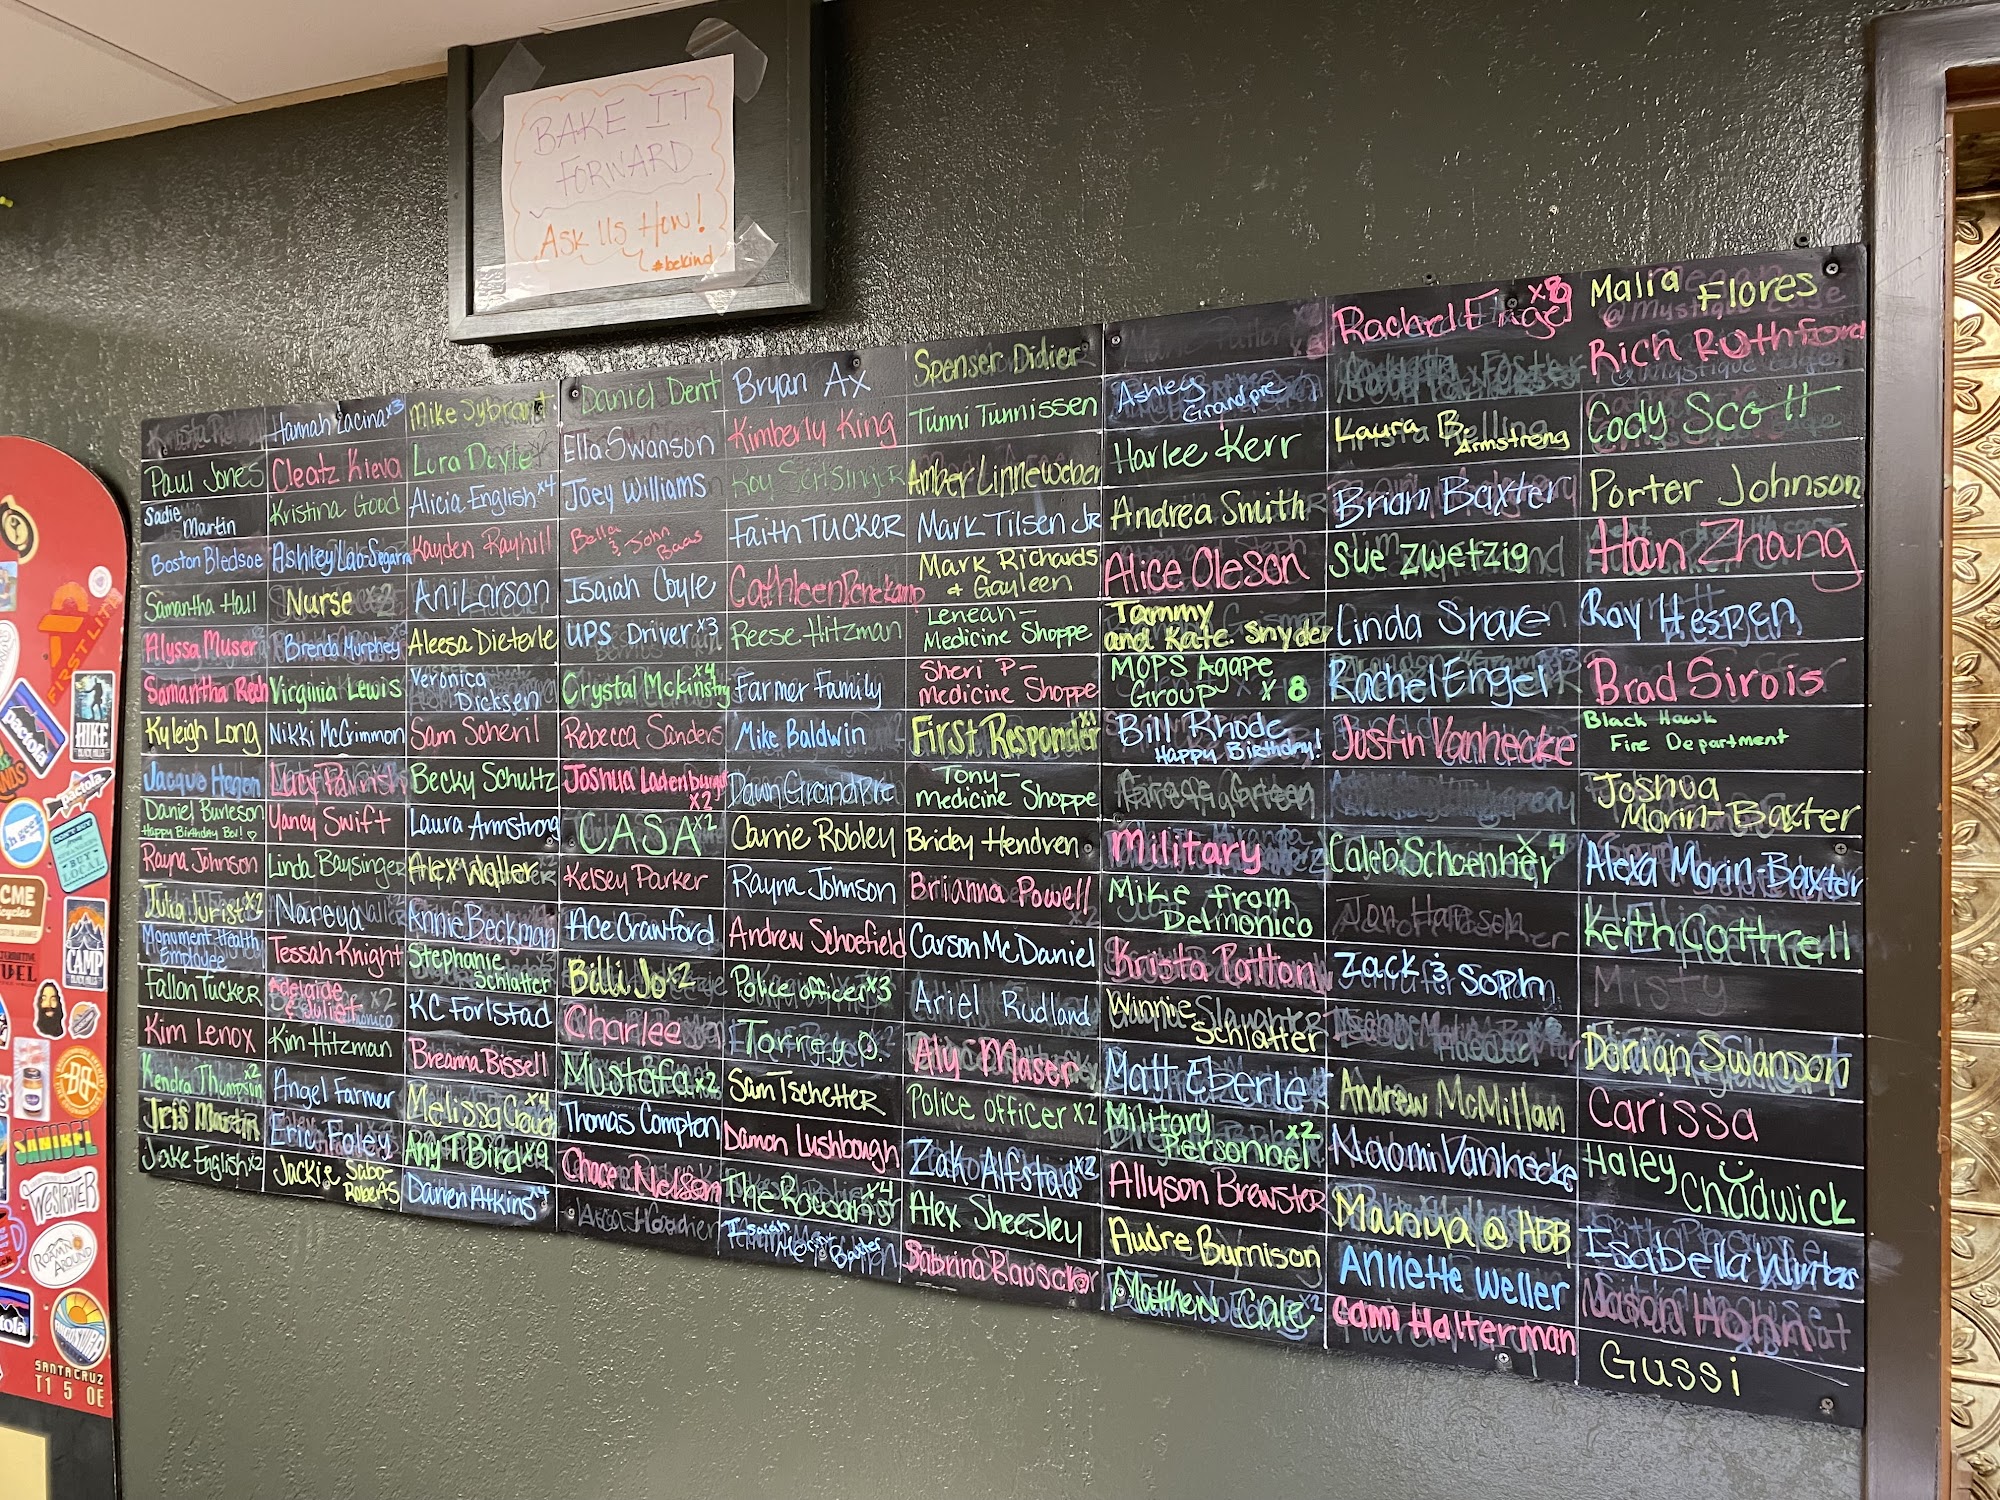 BAKE IT
FORWARD
Ask Us How!
#bekind
Paul Jones
Sadie
Martin
Boston Bledsoe
Samantha Hall
Alyssa Muser
Samantha Rech
Kyleigh Long
Jacque Hagen
Daniel Burleson
Happy Birthday Boi!
Rayna Johnson
Julia Jurist x2
Monument Health
Employee
Fallon Tucker
Kim Lenox
Kendra Thompson x2
Iris Martin
Jake English x2
Hannah Lacina x3
Cleatz Kieva
Kristina Good
Ashley Lao-Segarra
Nurse x2
Brenda Murphey
Virginia Lewis
Nikki McGrimmon
Lacy Parrish
Yancy Swift
Linda Baysinger
Nareya
Tessah Knight
Adelaide
& Juliet
Kim Hitzman
Angel Farmer
Eric Foley
Jackie Sabo-
Roberts
Mike Sybrant
Lora Doyle
Alicia English x4
Kayden Rayhill
Ani Larson
Aleesa Dieterle
Veronica
Dicksen
Sam Scheril
Becky Schultz
Laura Armstrong
Alex Waller
Annie Beckman
Stephanie
Schlatter
KC Forlstad
Breanna Bissell
Melissa Crouch x4
Any T Bird x9
Darren Atkins x4
Daniel Dent
Ella Swanson
Joey Williams
Bella
& John
Baas
Isaiah Coyle
UPS Driver x3
Crystal McKinstry x4
Rebecca Sanders
Joshua Ladenburger
x2
CASA x2
Kelsey Parker
Ace Crawford
Billi Jo x2
Charlee
Mustafa x2
Thomas Compton
Chace Nelson
Bryan Ax
Kimberly King
Faith TUCKER
Cathleen Penekamp
Reese Hitzman
Farmer Family
Mike Baldwin
Dawn Grandpre
Carrie Robley
Rayna Johnson
Andrew Schoefield
Police officer x3
Torrey O.
Sam Tschetter
Damon Lushbough
The Rowans x4
Spenser Didier
Tunni Tunnissen
Amber Linneweber
Mark Tilsen Jr
Mark Richards
& Gayleen
Lenean-
Medicine Shoppe
Sheri P-
Medicine Shoppe
First Responder x1
Tony-
Medicine Shoppe
Bridey Hendren
Brianna Powell
Carson McDaniel
Ariel Rudland
Aly Maser
Police officer x2
Zako Alfstad x2
Alex Sheesley
Sabrina Rauscher
Ashley
Grandpre
Harlee Kerr
Andrea Smith
Alice Oleson
Tammy
and Kate Snyder
MOPS Agape
Group x 8
Bill Rhode
Happy Birthday!
Military
Mike from
Delmonico
Krista Patton
Winnie
Schlatter
Matt Eberle
Military
Personnel x2
Allyson Brewster
Audre Burnison
Matthew Cale x2
Rachel Engel x8
Laura B.
Armstrong
Brian Baxter
Sue Zwetzig
Linda Shave
Rachel Engel
Justin Vanhecke
Caleb Schoenherr x4
Jon Hansen
Zack & Soph
Andrew McMillan
Naomi Vanhecke
Manya @ ABB
Annette Weller
Cami Halterman
Malia Flores
Rich Ruthford
Cody Scott
Porter Johnson
Han Zhang
Ray Hespen
Brad Sirois
Black Hawk
Fire Department
Joshua
Morin-Baxter
Alexa Morin-Baxter
Keith Cottrell
Misty
Dorian Swanson
Carissa
Haley
Chadwick
Isabella Winters
Jason Hohn
Gussi
FIRST LITE
pactola
HIKE
pactola
BUY
LOCAL
CAMP
SANIBEL
ROAM'N
AROUND
SANTA CRUZ